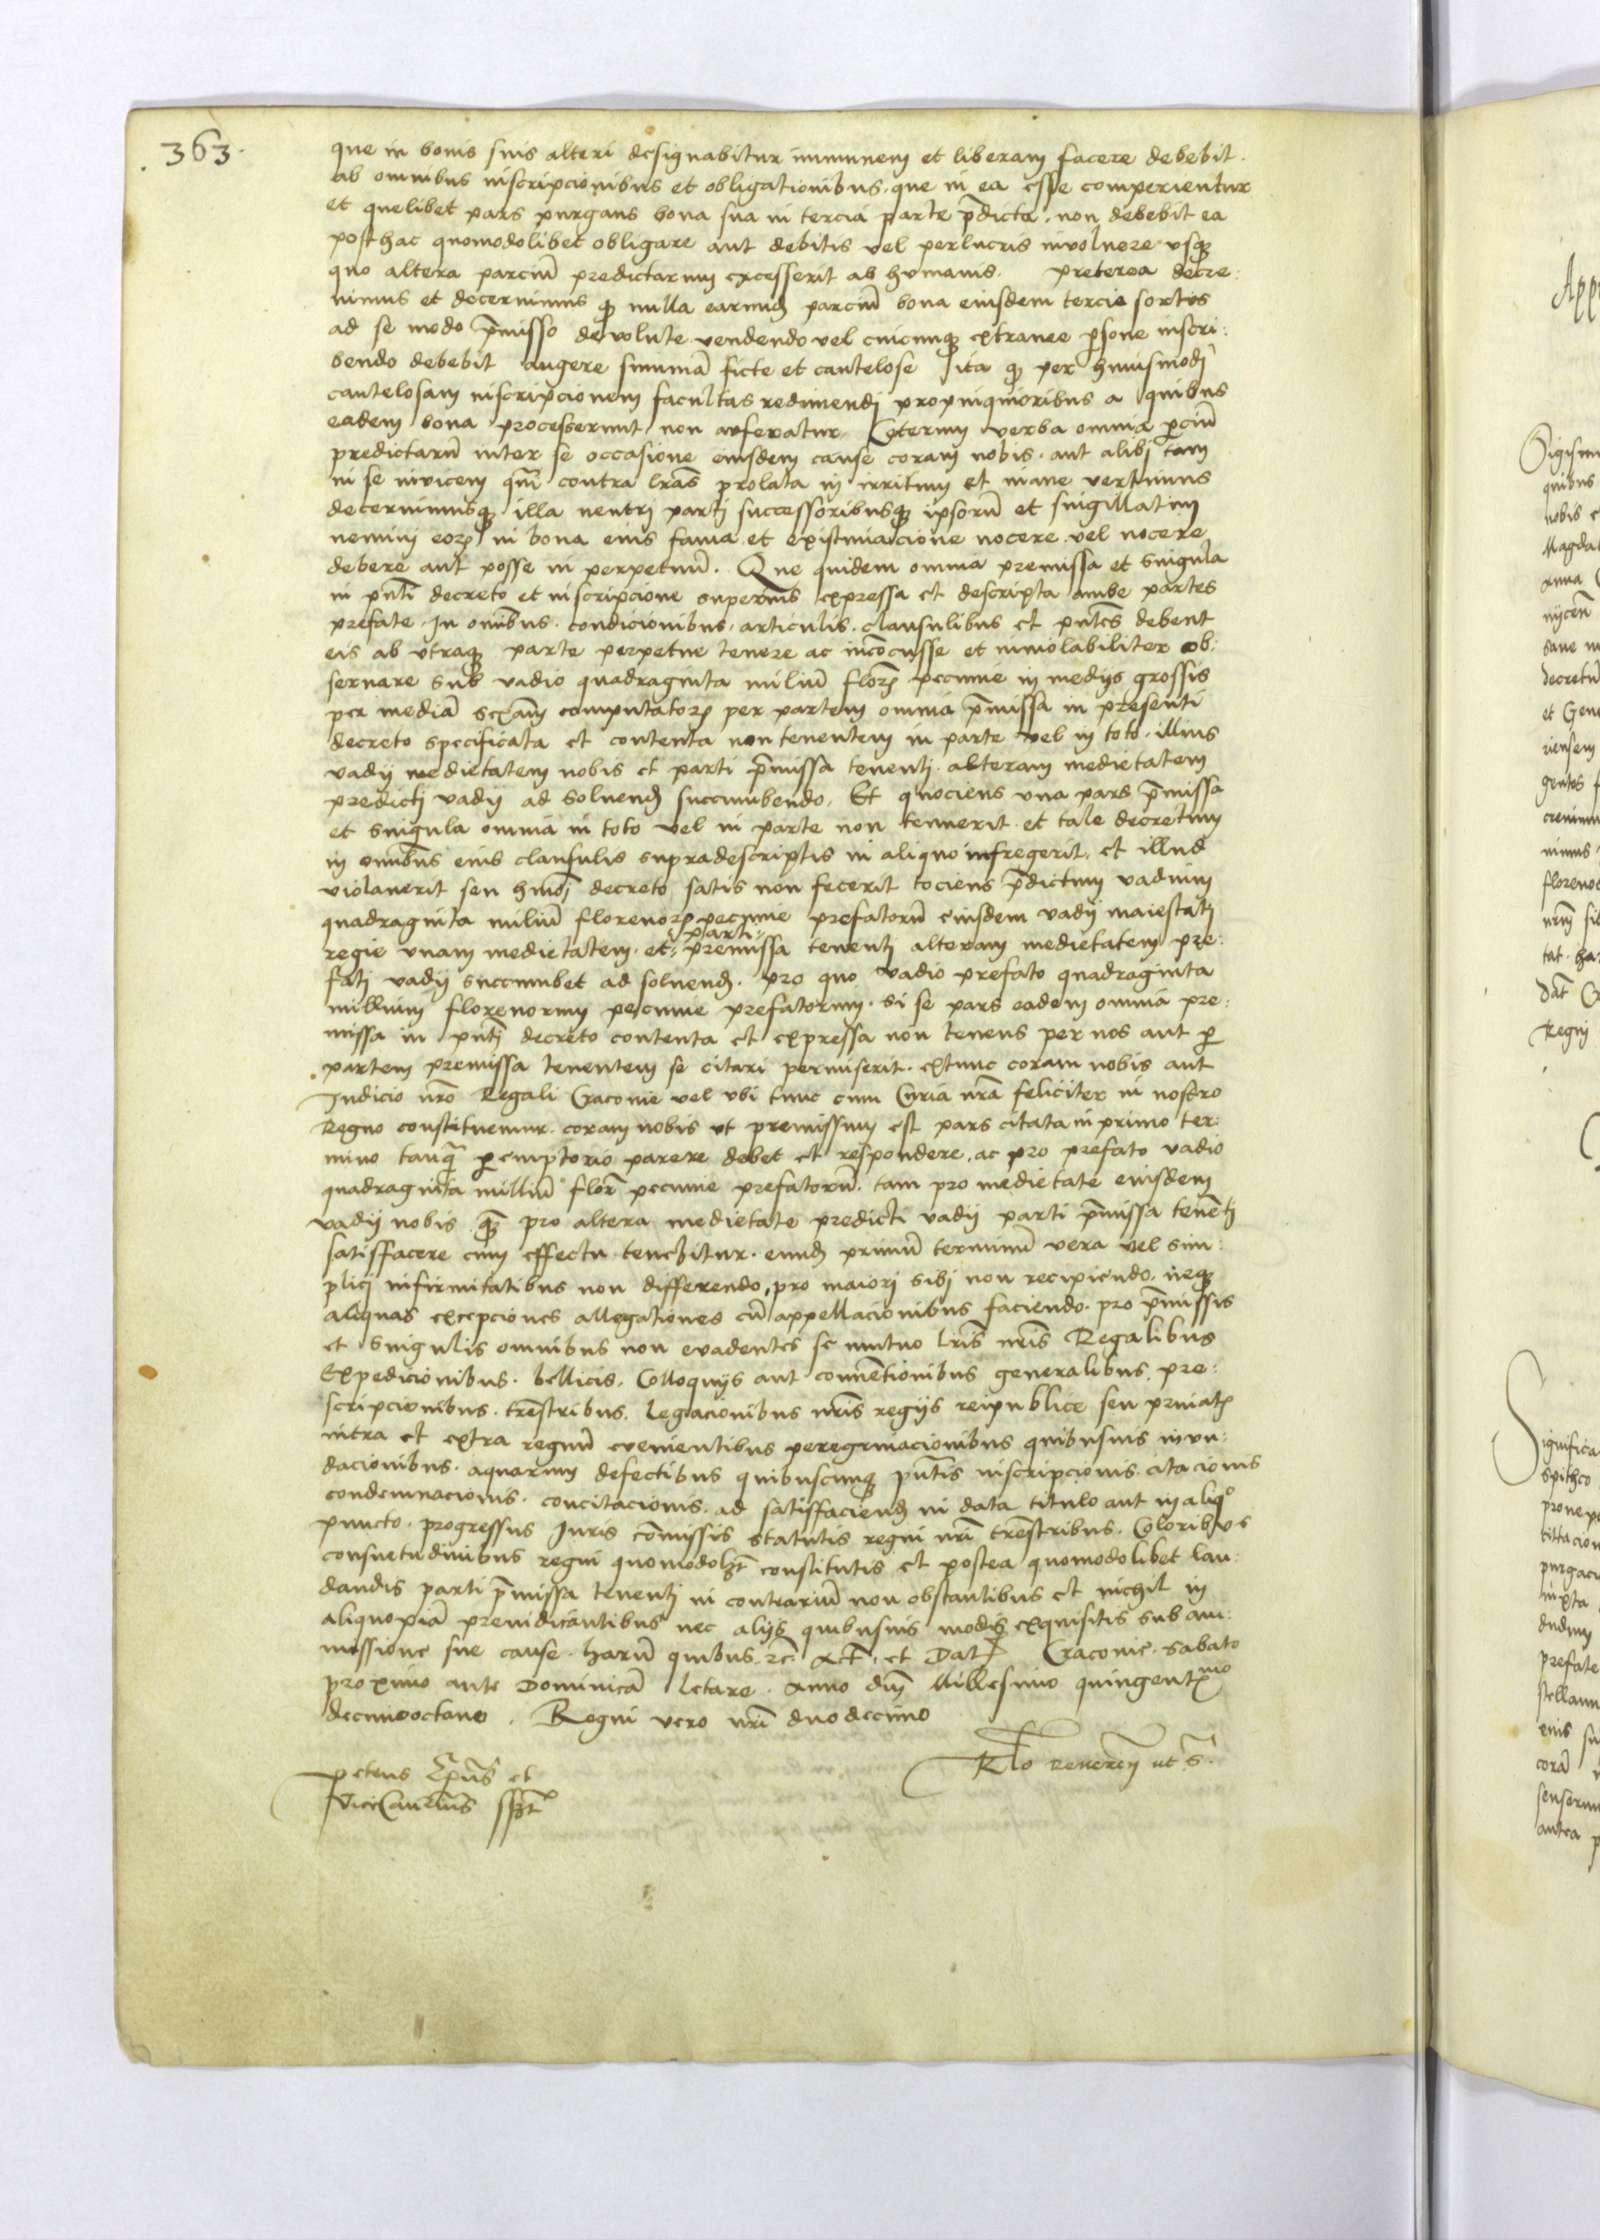 363.
que in bonis suis alteri designabitur immunem et liberam facere debebit.
ab omnibus inscripcionibus et obligationibus. que in ea esse comperientur
et quelibet pars purgans bona sua in tercia parte p̄dicta. non debebit ea
posthac quomodolibet obligare aut debitis vel perlucris involuere usq̄
quo altera parciū predictarum excesserit ab humanis. preterea decre:
nimus et decernimus q̄ nulla earund̄ parciū bona eiusdem tercie sortis
ad se modo p̄misso devolute vendendo vel cuicunq̄ extranee p̄sone inscri:
bendo debebit augere sum̄ā ficte et cautelose ita q̄ per huiusmodj
cautelosam inscripcionem facultas redimendj propinquioribus a quibus
eadem bona processerunt non auferatur. Ceterum verba omnia p̄ciū
predictarū inter se occasione eiusdem cause coram nobis. aut alibj tam
in se invicem quā contra lrās prolata in irritum et inane vertimus
decernimusq̄ illa neutrj partj successoribusq̄ ipsorū et singillatim
nemini eorꝝ in bona eius fama et existimacione nocere vel nocere
debere aut posse in perpetuū. Que quidem omnia premissa et singula
in pn̄ti decreto et inscripcione superius expressa et descripta ambe partes
prefate. In om̄ibus. condicionibus. articulis. clausulibus et pn̄tes debent
eis ab utraq̄ parte perpetue tenere ac inco̅cusse et inviolabiliter ob:
servare sub vadio quadraginta miliū florꝝ pecunie in medijs grossis
per mediā sexām computatorꝝ per partem omnia p̄missa in presenti
decreto specificata et contenta non tenentem in parte vel in toto. illius
vadij medietatem nobis et parti p̄missa tenentj. alteram medietatem
predictj vadij ad solvend̄ succumbendo. Et quociens una pars p̄missa
et singula omnia in toto vel in parte non tenuerit. et tale decretum
in om̄ibus eius clausulis supradescriptis in aliquo infregerit. et illud
violaverit seu hmōj decreto satis non fecerit tociens p̄dictum vadium
quadraginta miliū florenorꝝ pecunie prefatorū eiusdem vadij maiestatj
parti
regie unam medietatem. et premissa tenentj alteram medietatem pre:
fatj vadij succumbet ad solvend̄. pro quo vadio prefato quadraginta
millium florenorum pecunie prefatorum. si se pars eadem omnia pre:
missa in pn̄tj decreto contenta et expressa non tenens per nos aut p̄
partem premissa tenentem se citari permiserit. extunc coram nobis aut
Judicio nr̄o Regali Cracovie vel ubi tunc cum Curia nrā feliciter in nostro
Regno constituemur. coram nobis ut premissum est pars citata in primo ter:
mino tanq̄ p̄emptorio parere debet et respondere. ac pro prefato vadio
quadraginta milliū flor̄ pecunie prefatorū. tam pro medietate eiusdem
vadij nobis q̄ pro altera medietate predicti vadij parti p̄missa tenētj
satisfacere cum effectu tenebitur. eund̄ primū terminū vera vel sim:
plicj infirmitatibus non differendo, pro maiorj sibj non recipiendo. neq̄
aliquas excepciones allegationes cū appellacionibus faciendo. pro p̄missis
et singulis omnibus non evadentes se mutuo lr̄is nr̄is Regalibus
Expedicionibus. bellicis. Colloquijs aut conuētionibus generalibus pre:
scripcionibus. trēstribus. legacionibus nr̄is regijs reipublice seu privatꝭ
intra et extra regnū evenientibus peregrinacionibus quibusvis inun:
dacionibus. aquarum defectibus quibuscunq̄ pn̄tis inscripcionis. citacionis
condemnacionis. concitacionis. ad satisfaciend̄ in data titulo aut in aliqo
puncto. progressus Juris co̅missis statutis regni nr̄i trēstribus. Coloribus
consuetudinibus regni quomodolꝫt constitutis et postea quomodolibet lau:
dandis parti p̄missa tenentj in contrariū non obstantibus et nichil in
aliquopiā preiudicantibus nec alijs quibusvis modis exquisitis sub am:
missione sue cause. harū quibus. ꝛc̄. Act̄. et Dat̄ Cracovie. Sabato
proximo ante Dominicā letare. Anno dn̄j Millesimo quingentmo
decimooctavo. Regni vero nr̄i duodecimo
petrus Ep̄us et
vicecancellarius sst
Rlō reverēn ut s̄.